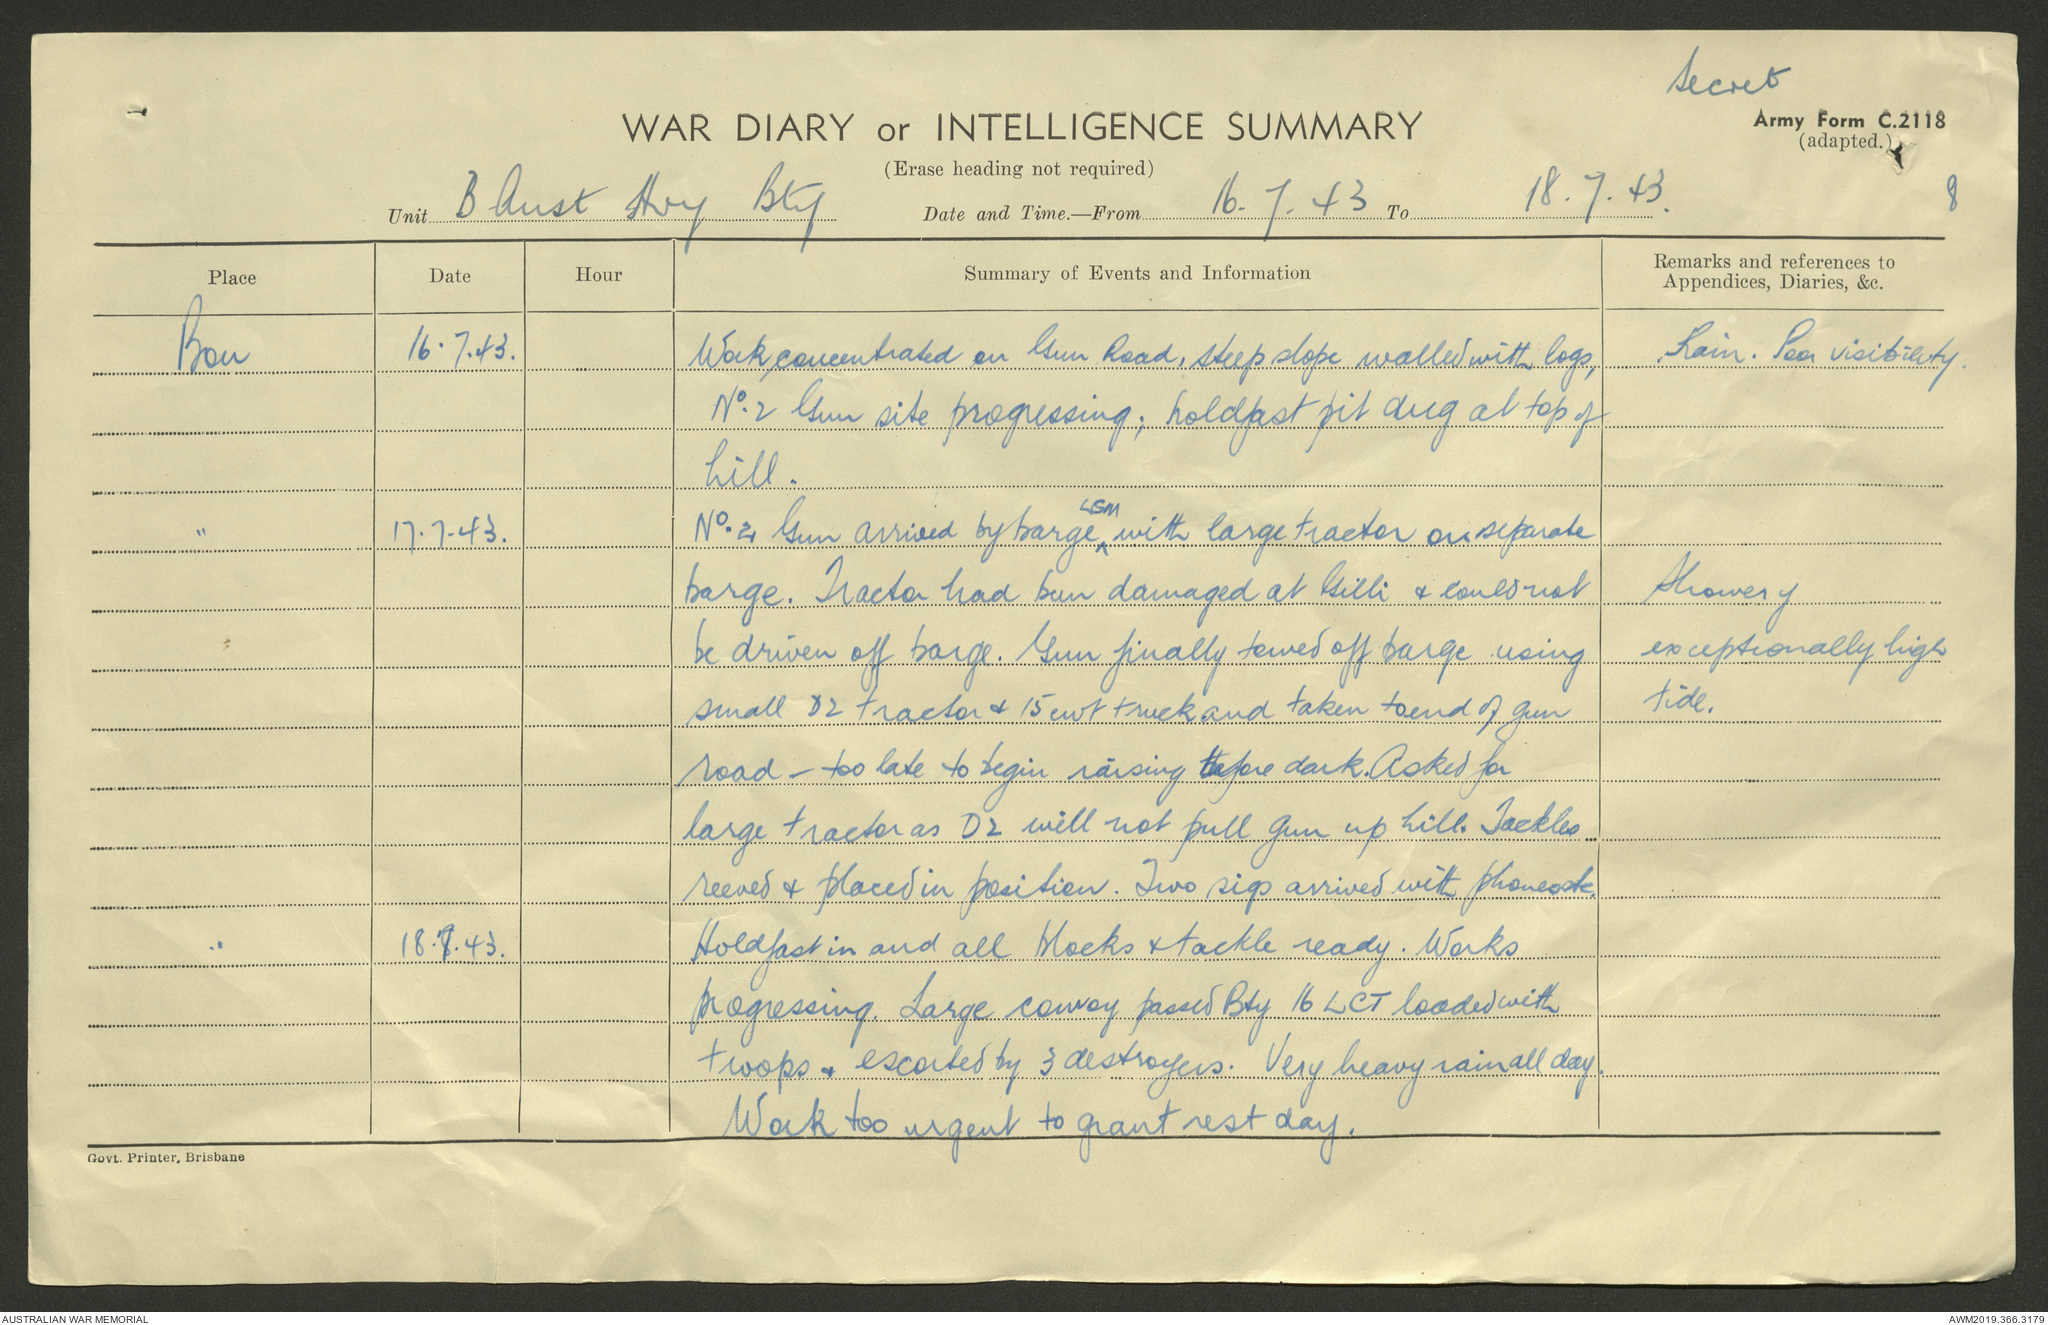 Secret
WAR DIARY or INTELLIGENCE SUMMARY
Army Form C.2118
(adapted.)
(Erase heading not required)
Unit B Aust Hvy Bty Date and Time.—From 16.7.43 To 18.7.43. 8
Place Date Hour Summary of Events and Information Remarks and references to
Appendices, Diaries, &c.
Bou 16.7.43. Work concentrated on Gun Road, steep slope walled with logs, Rain. Poor visibility.
No. 2 Gun site progressing; holdfast pit dug at top of
hill.
LCM
" 17.7.43. No. 2 Gun arrived by barge ^ with large tractor on separate
barge. Tractor had been damaged at Gilli & could not Showery
be driven off barge. Gun finally towed off barge using exceptionally high
small D2 tractor & 15cwt truck and taken to end of gun tide.
road - too late to begin raising before dark. Asked for
large tractor as D2 will not pull gun up hill. Tackles
reeved & placed in position. Two sigs arrived with phones etc.
" 18.7.43. Holdfast in and all blocks & tackle ready. Works
progressing. Large convoy passed Bty 16 LCT loaded with
troops & escorted by 3 destroyers. Very heavy rain all day.
Work too urgent to grant rest day.
Govt. Printer, Brisbane
AUSTRALIAN WAR MEMORIAL AWM2019.366.3179